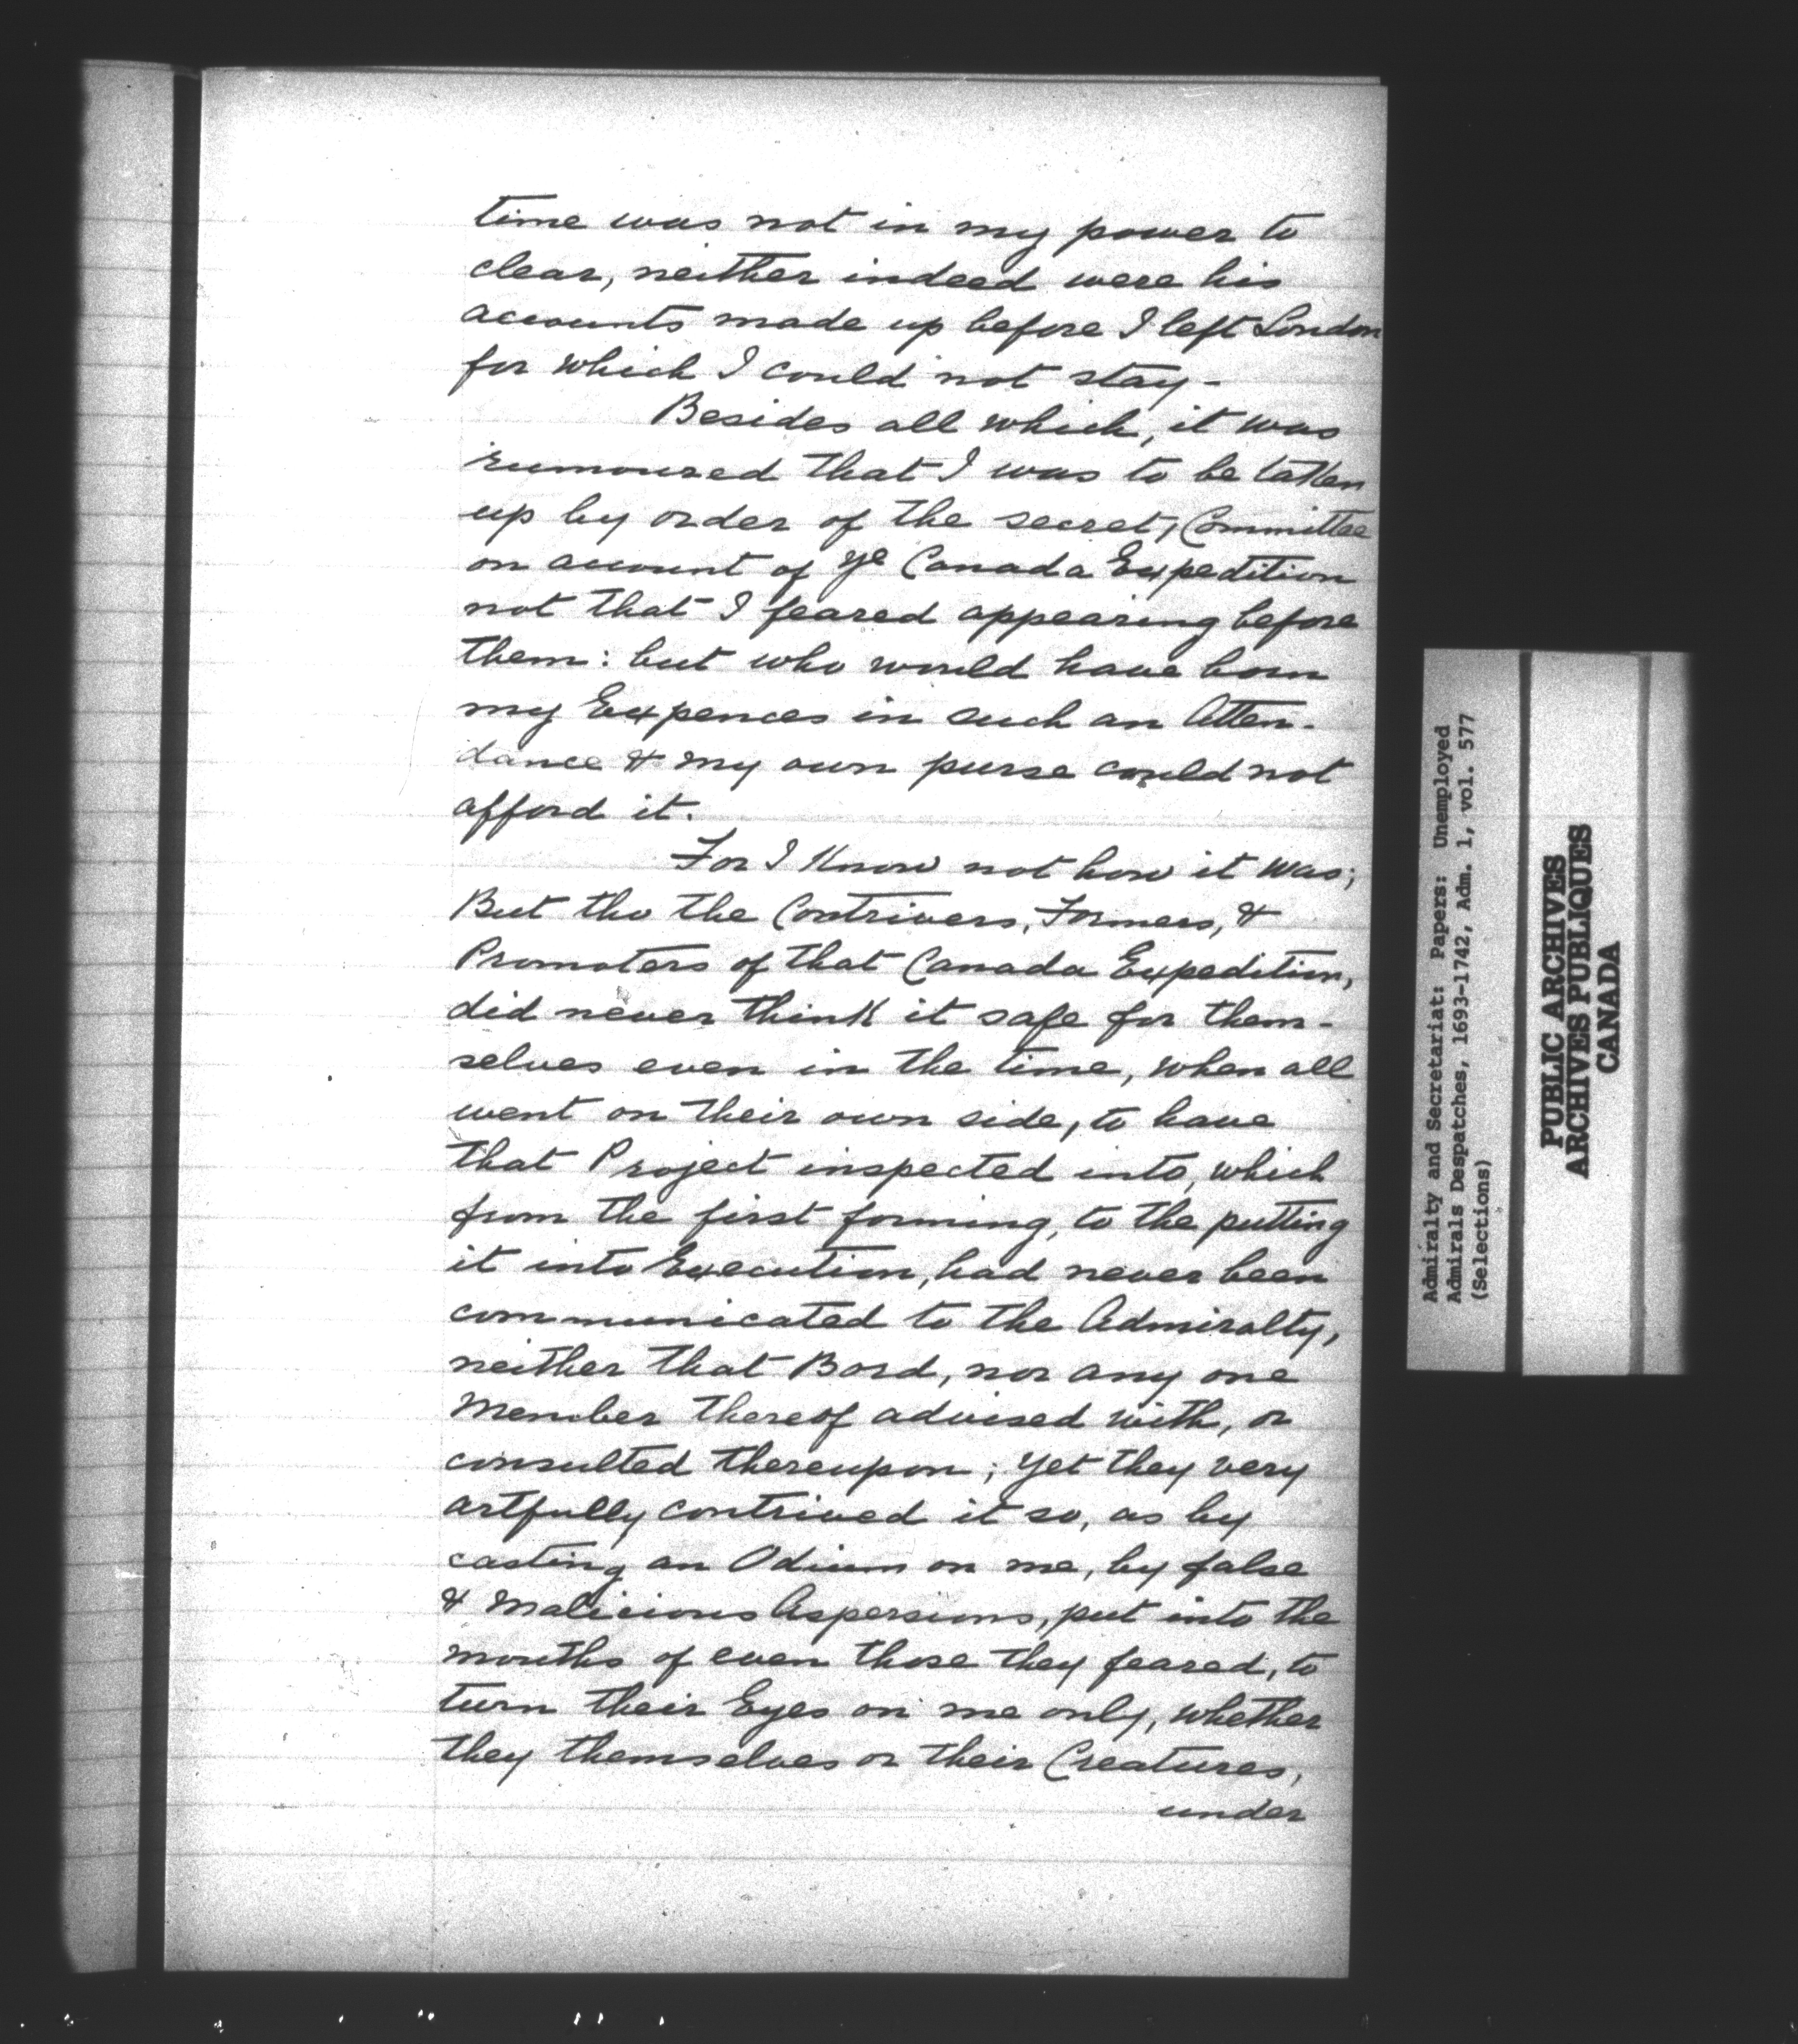 time was not in my power to
clear, neither indeed were his
accounts made up before I left London
for which I could not stay -
Besides all which, it was
rumoured that I was to be taken
up by order of the secret, Committee
on account of ye Canada Expedition
not that I feared appearing before
them: but who would have born
my Expences in such an Atten-
dance & my own purse could not
afford it.
For I know not how it was;
But tho the Contrivers, Formers, &
Promoters of that Canada Expedition,
did never think it safe for them-
selves even in the time, when all
went on their own side, to have
that Project inspected into, which
from the first forming, to the putting
it into Execution, had never been
communicated to the Admiralty,
neither that Bord, nor any one
Member thereof advised with, or
consulted thereupon; yet they very
artfully contrived it so, as by
casting an Odium on me, by false
& Malicious Aspersions, put into the
mouths of even those they feared, to
turn their Eyes on me only, whether
they themselves or their Creatures,
under
Admiralty and Secretariat: Papers: Unemployed
Admirals Despatches, 1693-1742, Adm. 1, vol. 577
(Selections)
PUBLIC ARCHIVES
ARCHIVES PUBLIQUES
CANADA